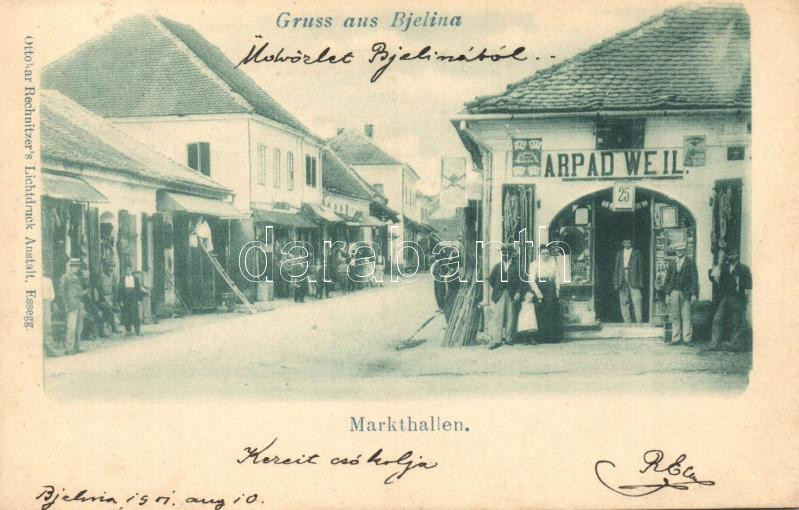 Gruss aus Bjelina
Üdvözlet Bjelinából..
Ottokar Rechnitzer's Lichtdruck Anstalt, Essegg.
ARPAD WEIL.
25
darabanth.com
Markthallen.
Kezeit csókolja
Bjelina 1901. aug 10.